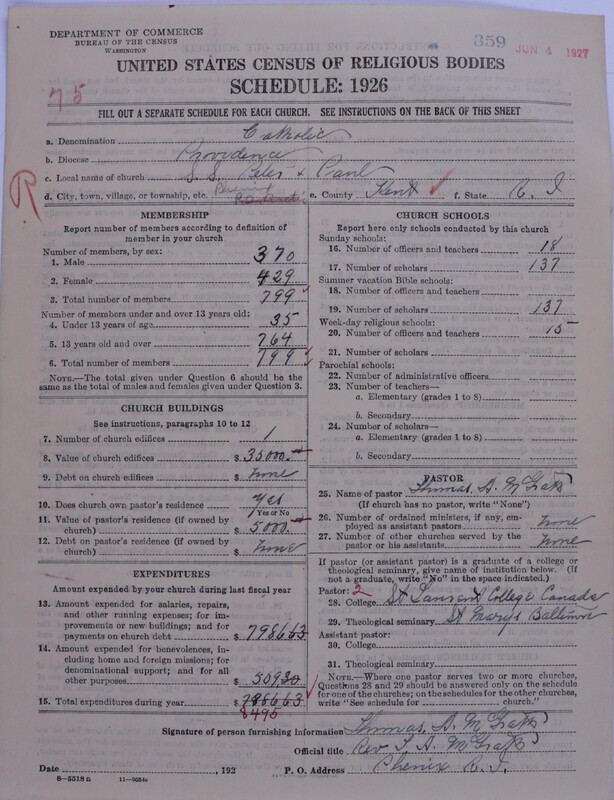 DEPARTMENT OF COMMERCE
BUREAU OF THE CENSUS
WASHINGTON
359
JUN 4 1927
UNITED STATES CENSUS OF RELIGIOUS BODIES
75
SCHEDULE: 1926
FILL OUT A SEPARATE SCHEDULE FOR EACH CHURCH. SEE INSTRUCTIONS ON THE BACK OF THIS SHEET
a. Denomination Catholic
b. Diocese Providence
c. Local name of church S.S. Peter & Paul
R
d. City, town, village, or township, etc. Phenix e. County Kent ✓ f. State R. I
MEMBERSHIP
Report number of members according to definition of
member in your church
Number of members, by sex:
1. Male 370
2. Female 429
3. Total number of members 799 ✓
Number of members under and over 13 years old:
4. Under 13 years of age 35
5. 13 years old and over 764
6. Total number of members 799 ✓
NOTE.—The total given under Question 6 should be the
same as the total of males and females given under Question 3.
CHURCH BUILDINGS
See instructions, paragraphs 10 to 12
7. Number of church edifices 1
8. Value of church edifices $ 35000.
9. Debt on church edifices $ none
10. Does church own pastor's residence Yes
Yes or No
11. Value of pastor's residence (if owned by
church) $ 5000.
12. Debt on pastor's residence (if owned by
church) $ none
EXPENDITURES
Amount expended by your church during last fiscal year
13. Amount expended for salaries, repairs,
and other running expenses; for im-
provements or new buildings; and for
payments on church debt $ 798663
14. Amount expended for benevolences,
including home and foreign missions; for
denominational support; and for all
other purposes $ 50930
15. Total expenditures during year $ 798663 ✓
8495
CHURCH SCHOOLS
Report here only schools conducted by this church
Sunday schools:
16. Number of officers and teachers 18
17. Number of scholars 137
Summer vacation Bible schools:
18. Number of officers and teachers
19. Number of scholars 137
Week-day religious schools:
20. Number of officers and teachers 15
21. Number of scholars
Parochial schools:
22. Number of administrative officers
23. Number of teachers—
a. Elementary (grades 1 to 8)
b. Secondary
24. Number of scholars—
a. Elementary (grades 1 to 8)
b. Secondary
PASTOR
25. Name of pastor Thomas A. McGrath
(If church has no pastor, write "None")
26. Number of ordained ministers, if any, em-
ployed as assistant pastors none
27. Number of other churches served by the
pastor or his assistants none
If pastor (or assistant pastor) is a graduate of a college or
theological seminary, give name of institution below. (If
not a graduate, write "No" in the space indicated.)
Pastor: 2
28. College St Laurent College Canada
29. Theological seminary St Marys Baltimore
Assistant pastor:
30. College
31. Theological seminary
NOTE.—Where one pastor serves two or more churches,
Questions 28 and 29 should be answered only on the schedule
for one of the churches; on the schedules for the other churches,
write "See schedule for church."
Signature of person furnishing information Thomas A. McGrath
Official title Rev T. A. McGrath
Date , 192 P. O. Address Phenix R. I.
8-5518 a